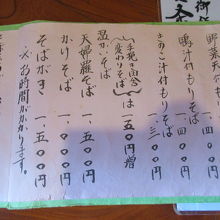 野菜天
鴨汁付もりそば 一、四〇〇円
きのこ汁付もりそば 一、三〇〇円
手挽き田舎
変わりそば は一五〇円増
温かいそば
天婦羅そば 一、五〇〇円
かけそば 一、〇〇〇円
そばがき 一、五〇〇円
※お時間がかかります。